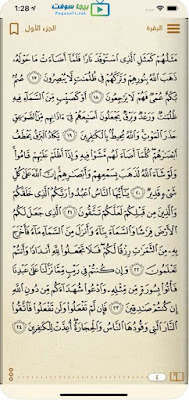 1:28
بيجا سوفت
PegaSoft.net
البقرة
الجزء الأول
مَثَلُهُمْ كَمَثَلِ ٱلَّذِى ٱسْتَوْقَدَ نَارًا فَلَمَّآ أَضَآءَتْ مَا حَوْلَهُۥ
ذَهَبَ ٱللَّهُ بِنُورِهِمْ وَتَرَكَهُمْ فِى ظُلُمَٰتٍ لَّا يُبْصِرُونَ ١٧
صُمٌّۢ بُكْمٌ عُمْىٌ فَهُمْ لَا يَرْجِعُونَ ١٨ أَوْ كَصَيِّبٍ مِّنَ ٱلسَّمَآءِ فِيهِ
ظُلُمَٰتٌ وَرَعْدٌ وَبَرْقٌ يَجْعَلُونَ أَصَٰبِعَهُمْ فِىٓ ءَاذَانِهِم مِّنَ ٱلصَّوَٰعِقِ
حَذَرَ ٱلْمَوْتِ وَٱللَّهُ مُحِيطٌۢ بِٱلْكَٰفِرِينَ ١٩ يَكَادُ ٱلْبَرْقُ يَخْطَفُ
أَبْصَٰرَهُمْ كُلَّمَآ أَضَآءَ لَهُم مَّشَوْا۟ فِيهِ وَإِذَآ أَظْلَمَ عَلَيْهِمْ قَامُوا۟
وَلَوْ شَآءَ ٱللَّهُ لَذَهَبَ بِسَمْعِهِمْ وَأَبْصَٰرِهِمْ إِنَّ ٱللَّهَ عَلَىٰ كُلِّ
شَىْءٍ قَدِيرٌ ٢٠ يَٰٓأَيُّهَا ٱلنَّاسُ ٱعْبُدُوا۟ رَبَّكُمُ ٱلَّذِى خَلَقَكُمْ
وَٱلَّذِينَ مِن قَبْلِكُمْ لَعَلَّكُمْ تَتَّقُونَ ٢١ ٱلَّذِى جَعَلَ لَكُمُ
ٱلْأَرْضَ فِرَٰشًا وَٱلسَّمَآءَ بِنَآءً وَأَنزَلَ مِنَ ٱلسَّمَآءِ مَآءً فَأَخْرَجَ
بِهِۦ مِنَ ٱلثَّمَرَٰتِ رِزْقًا لَّكُمْ فَلَا تَجْعَلُوا۟ لِلَّهِ أَندَادًا وَأَنتُمْ
تَعْلَمُونَ ٢٢ وَإِن كُنتُمْ فِى رَيْبٍ مِّمَّا نَزَّلْنَا عَلَىٰ عَبْدِنَا
فَأْتُوا۟ بِسُورَةٍ مِّن مِّثْلِهِۦ وَٱدْعُوا۟ شُهَدَآءَكُم مِّن دُونِ ٱللَّهِ
إِن كُنتُمْ صَٰدِقِينَ ٢٣ فَإِن لَّمْ تَفْعَلُوا۟ وَلَن تَفْعَلُوا۟ فَٱتَّقُوا۟
ٱلنَّارَ ٱلَّتِى وَقُودُهَا ٱلنَّاسُ وَٱلْحِجَارَةُ أُعِدَّتْ لِلْكَٰفِرِينَ ٢٤
٤